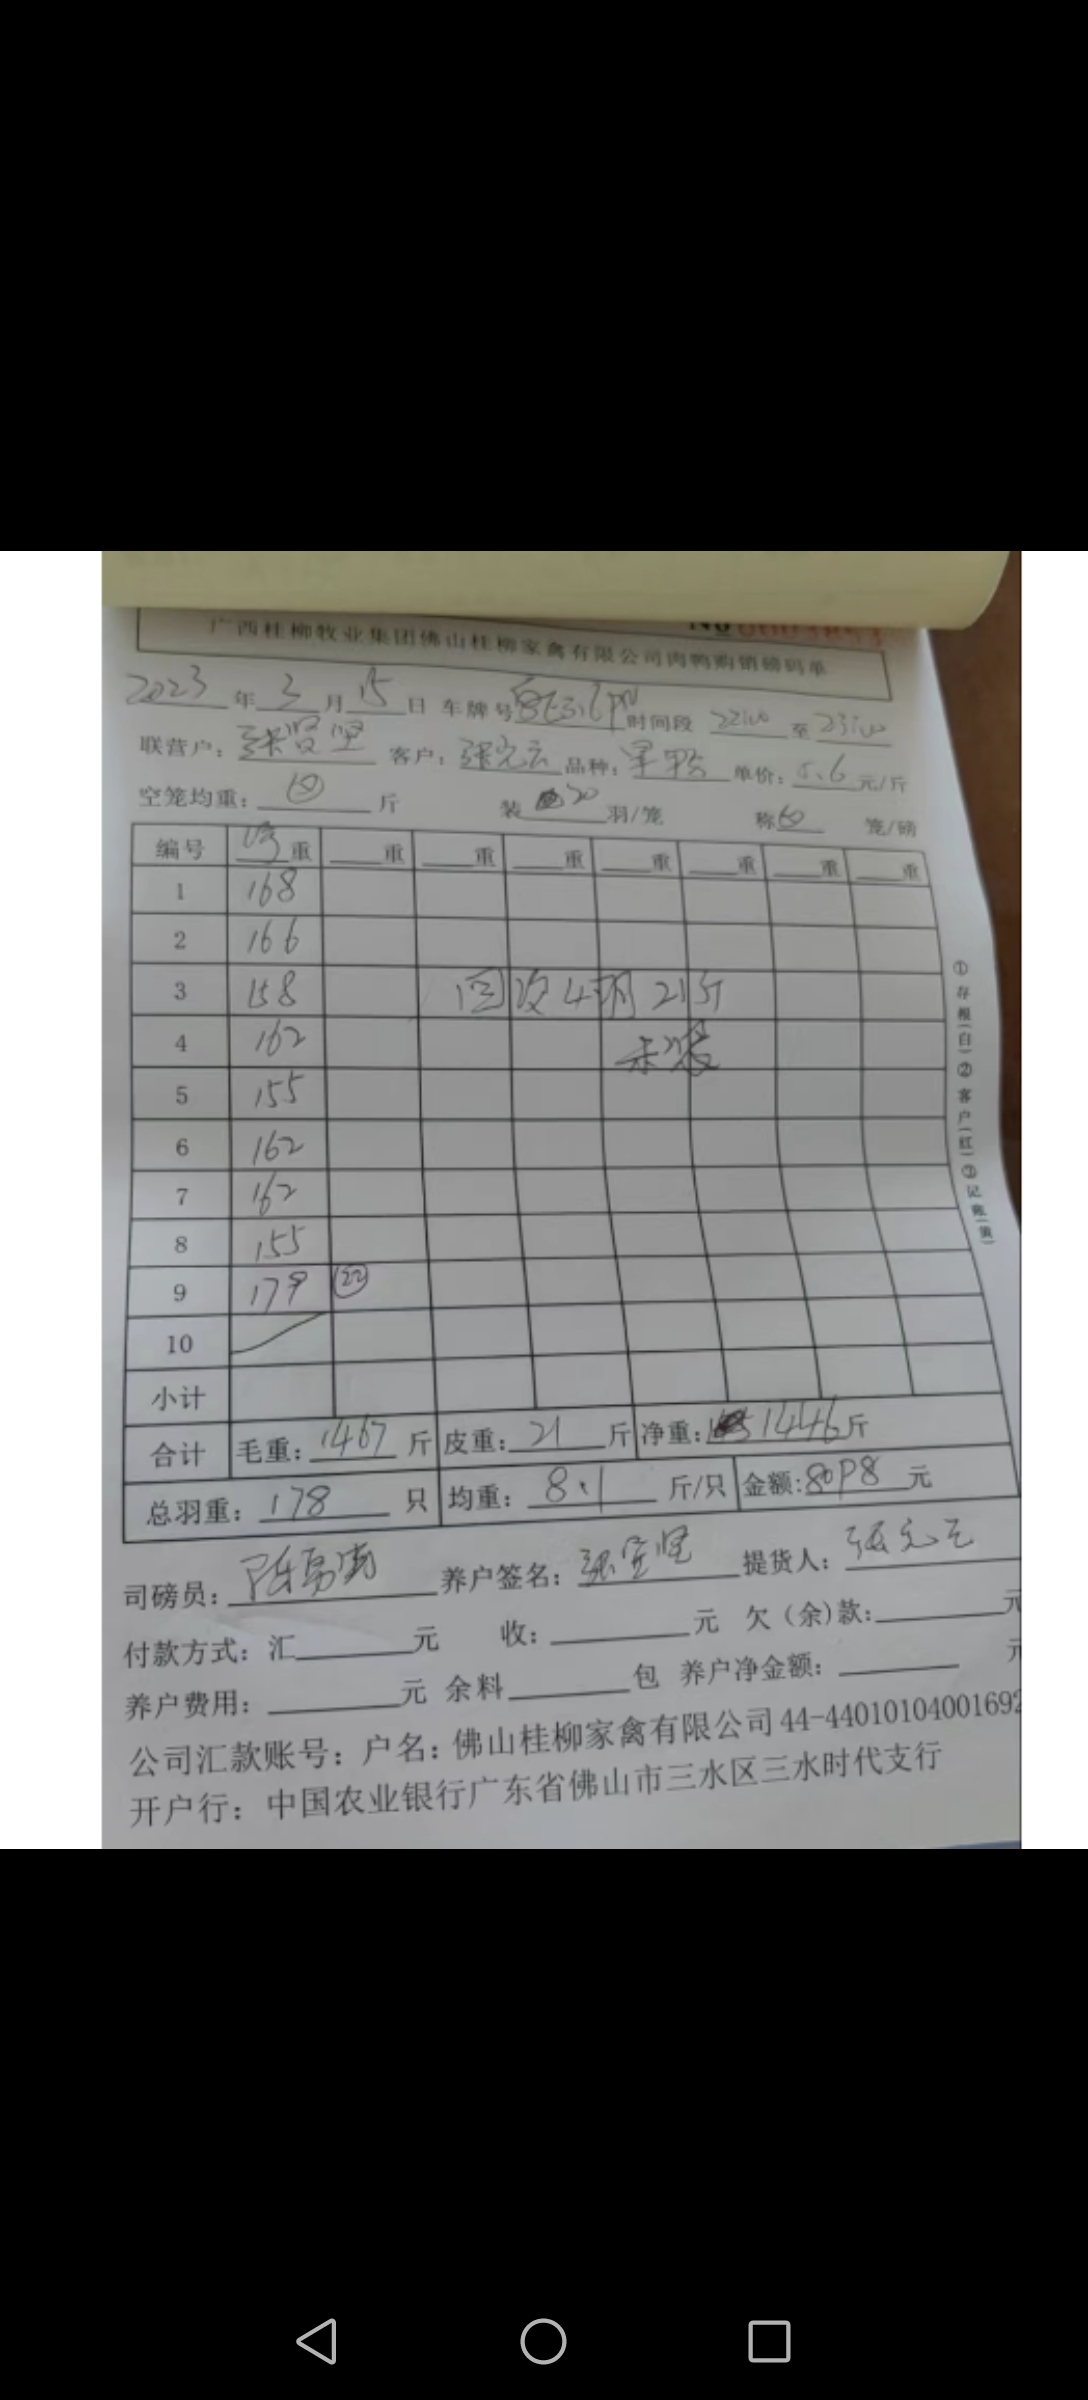 广西桂柳牧业集团佛山桂柳家禽有限公司肉鸭购销磅码单
2023年3月15日 车牌号 时间段 22:00 至 23:00
联营户: 张贤坚 客户: 张元云 品种: 单价: 5.6元/斤
空笼均重: 斤 装 20 羽/笼 称 笼/磅
编号 重 重 重 重 重 重 重 重
1 168
2 166
3 158 回次4鸭21斤
4 162 未装
5 155
6 162
7 162
8 155
9 179 22
10
小计
合计 毛重: 1467 斤 皮重: 21 斤 净重: 1446斤
总羽重: 178 只 均重: 8.1 斤/只 金额: 8098 元
司磅员: 养户签名: 张贤坚 提货人: 张元云
付款方式: 汇 元 收: 元 欠(余)款: 元
养户费用: 元 余料 包 养户净金额: 元
公司汇款账号: 户名: 佛山桂柳家禽有限公司 44-44010104001692
开户行: 中国农业银行广东省佛山市三水区三水时代支行
①存根(白)②客户(红)③记账(黄)